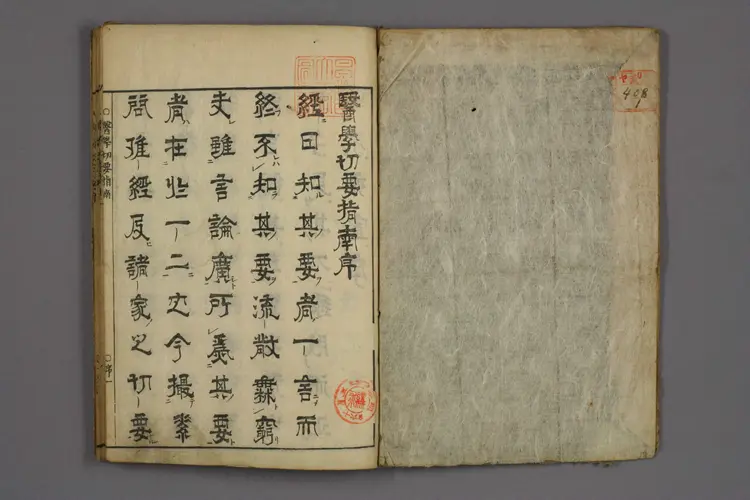 408
1
醫學切要指南序
經曰知其要者一言而
終不知其要流散無窮
夫雖言論廣所爲其要
者在此一二也今撮素
問難經及諸家之切要
○醫學切要指南
○序一